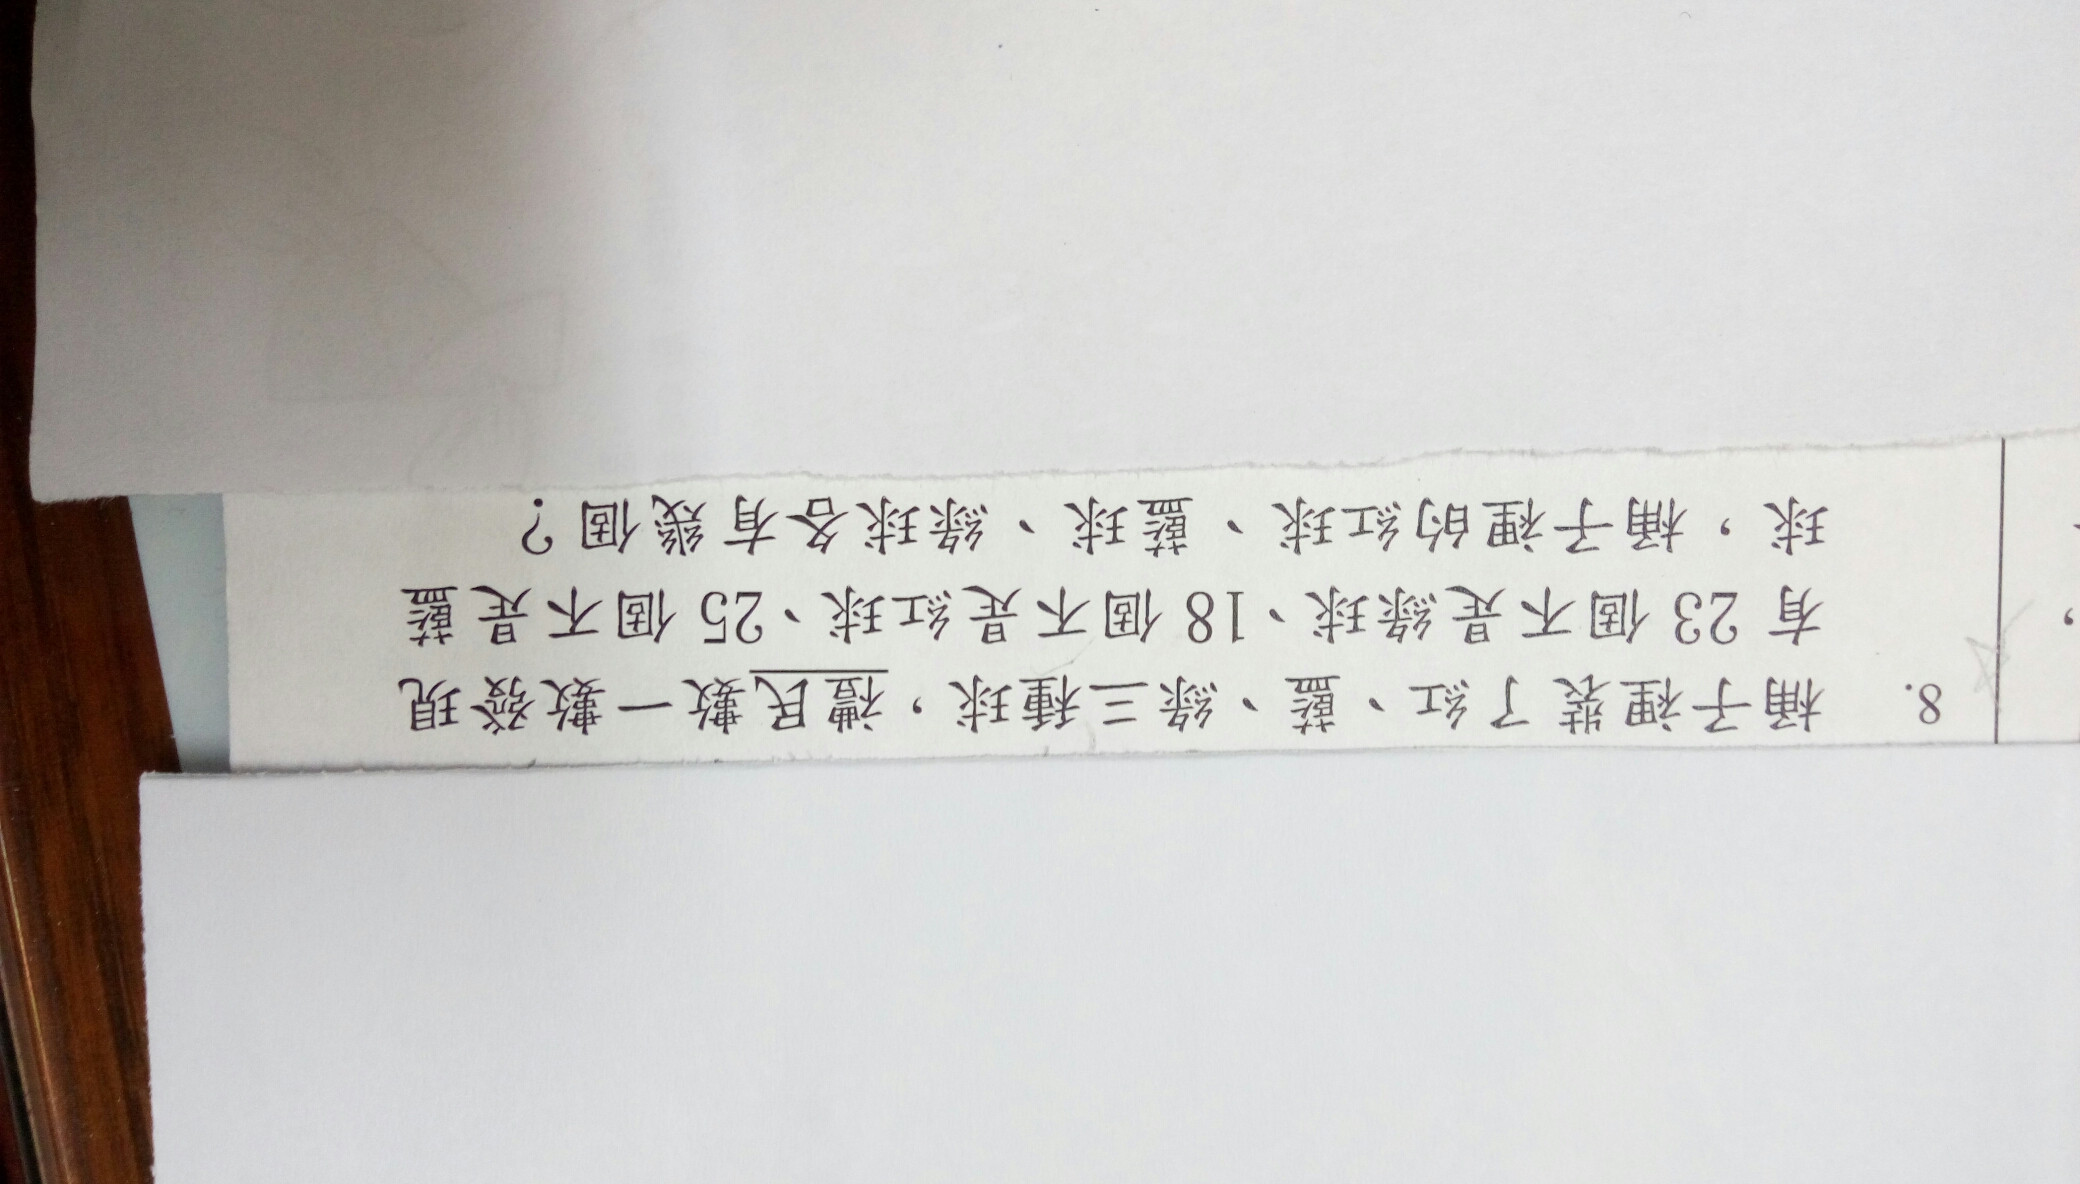 8. 桶子裡裝了紅、藍、綠三種球，禮民數一數發現
有 23 個不是綠球、18 個不是紅球、25 個不是藍
球，桶子裡的紅球、藍球、綠球各有幾個？